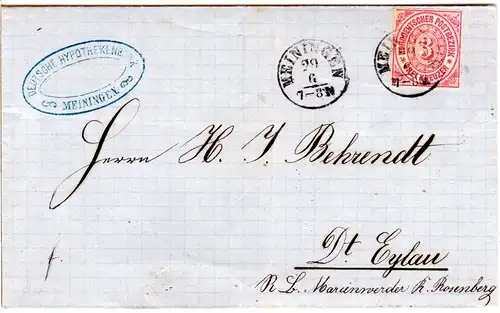 DEUTSCHE HYPOTHEKENBANK
MEININGEN
MEININGEN
29
6
7-8N
MEININGEN
7-8N
NORDDEUTSCHER POSTBEZIRK
3
KREUZER
Herrn H. J. Behrendt
Dt. Eylau
R. B. Marienwerder K. Rosenberg